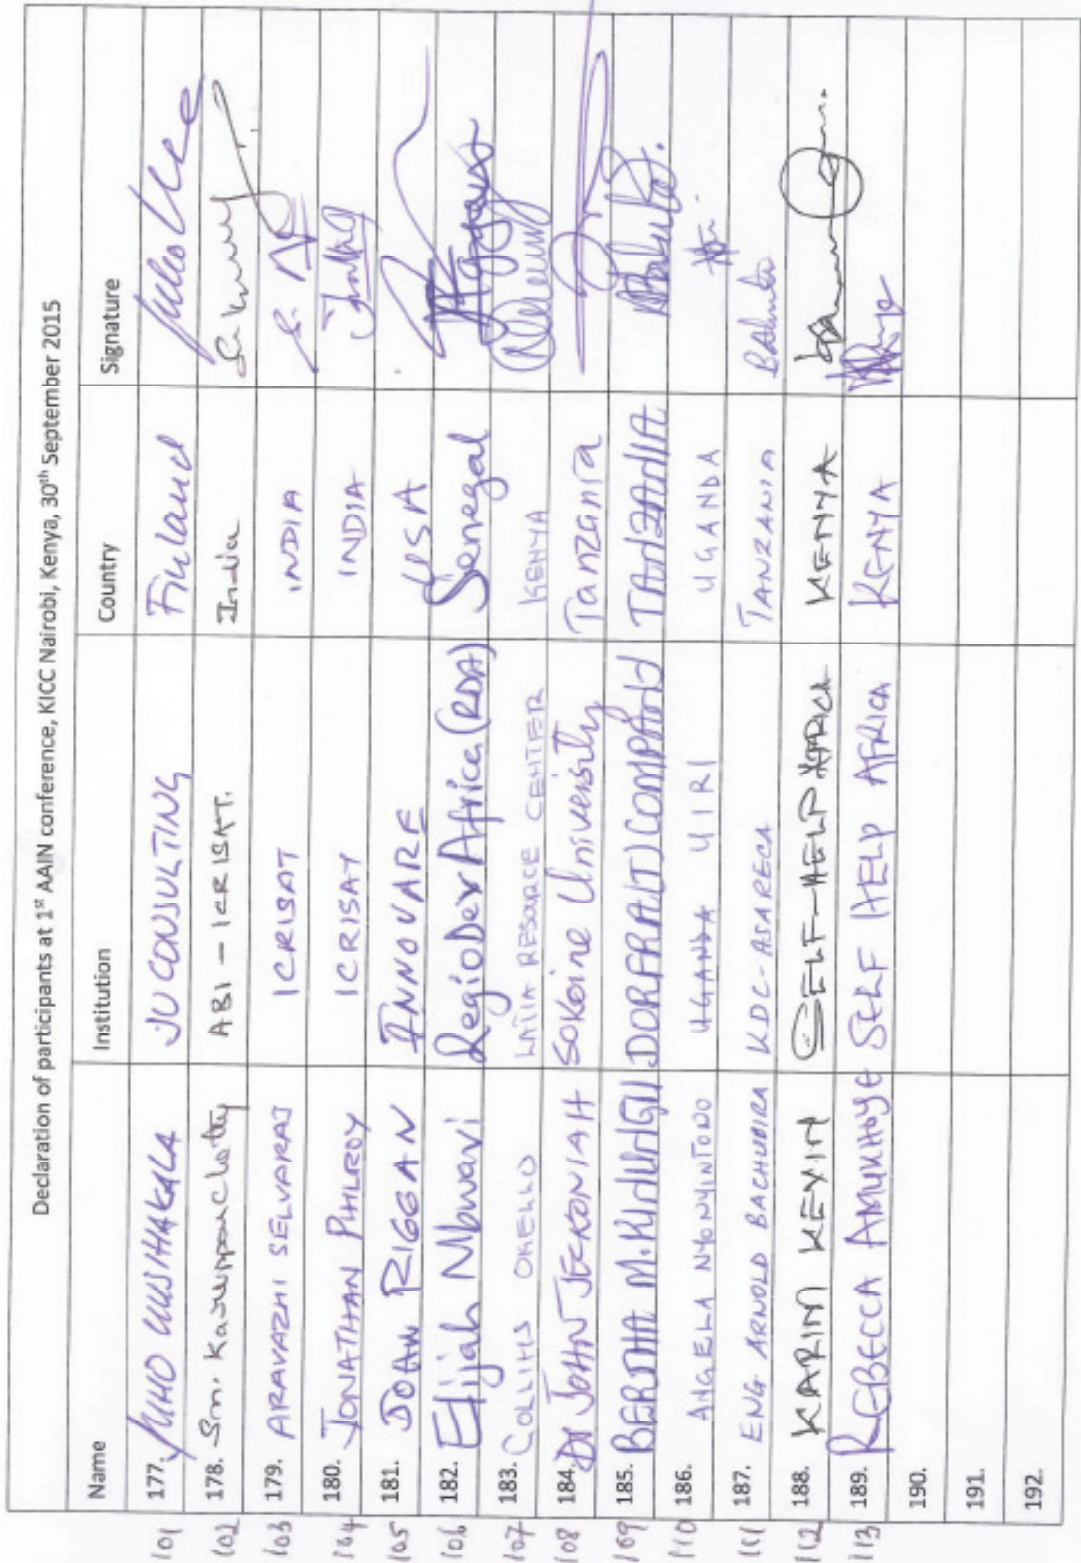 Declaration of participants at 1st AAIN conference, KICC Nairobi, Kenya, 30th September 2015
Name Institution Country Signature
101 177. JUHO UUSIHAKALA JU CONSULTING Finland
102 178. Sm. Karuppanchetty ABI - ICRISAT. India
103 179. ARAVAZHI SELVARAJ ICRISAT INDIA
104 180. JONATHAN PHILROY ICRISAT INDIA
105 181. JOAN RIGGAN INNOVARE USA
106 182. Elijah Mbwavi RegioDev Africa (RDA) Senegal
107 183. COLLINS OKELLO LAIIA RESOURCE CENTER KENYA
108 184. Dr JOHN JECKONIAH Sokoine University Tanzania
109 185. BERTHA M. KINUNGU DORFRA(T) COMPANY TANZANIA
110 186. ANGELA NYONYINTONO UGANDA UIRI UGANDA
111 187. ENG ARNOLD BACHUBIRA KDC-ASARECA TANZANIA
112 188. KARIM KEVIN SELF-HELP AFRICA KENYA
113 189. REBECCA AMUKHOYE SELF HELP AFRICA KENYA
190.
191.
192.